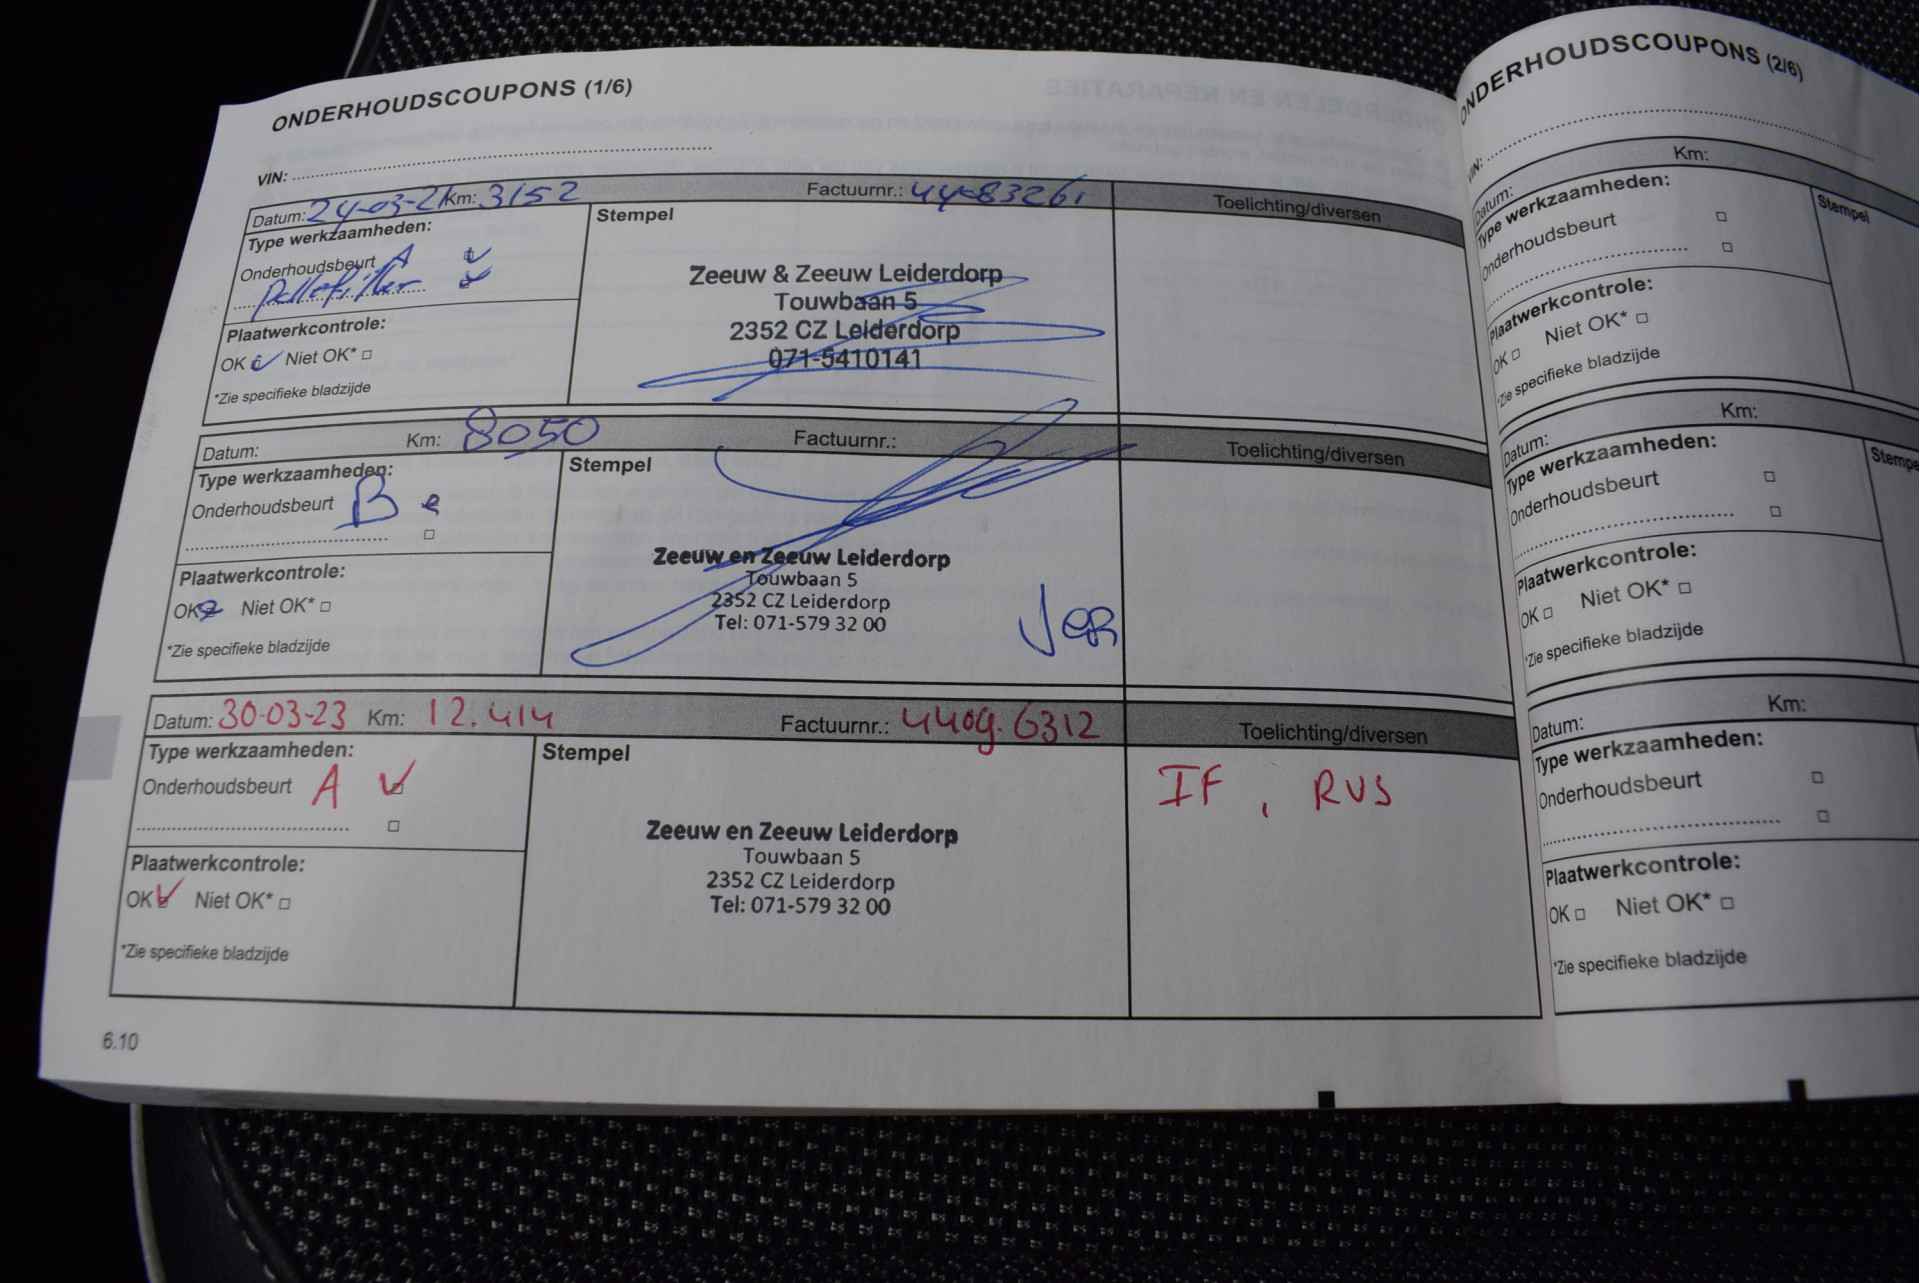 ONDERHOUDSCOUPONS (1/6)
VIN:
Datum: 24-03-21 Km: 3152 Factuurnr.: 44-83261 Toelichting/diversen
Type werkzaamheden:
Onderhoudsbeurt A
Pollefilter
Plaatwerkcontrole:
OK Niet OK*
*Zie specifieke bladzijde
Stempel
Zeeuw & Zeeuw Leiderdorp
Touwbaan 5
2352 CZ Leiderdorp
071-5410141
Datum: Km: 8050 Factuurnr.: Toelichting/diversen
Type werkzaamheden:
Onderhoudsbeurt B
Plaatwerkcontrole:
OK Niet OK*
*Zie specifieke bladzijde
Stempel
Zeeuw en Zeeuw Leiderdorp
Touwbaan 5
2352 CZ Leiderdorp
Tel: 071-579 32 00
Datum: 30-03-23 Km: 12.414 Factuurnr.: 4409.6312 Toelichting/diversen
Type werkzaamheden:
Onderhoudsbeurt A
Plaatwerkcontrole:
OK Niet OK*
*Zie specifieke bladzijde
Stempel
Zeeuw en Zeeuw Leiderdorp
Touwbaan 5
2352 CZ Leiderdorp
Tel: 071-579 32 00
IF, RVS
6.10
ONDERHOUDSCOUPONS (2/6)
VIN:
Datum: Km:
Type werkzaamheden:
Stempel
Onderhoudsbeurt
Plaatwerkcontrole:
OK Niet OK*
*Zie specifieke bladzijde
Datum: Km:
Type werkzaamheden:
Stempe
Onderhoudsbeurt
Plaatwerkcontrole:
OK Niet OK*
*Zie specifieke bladzijde
Datum: Km:
Type werkzaamheden:
Onderhoudsbeurt
Plaatwerkcontrole:
OK Niet OK*
*Zie specifieke bladzijde